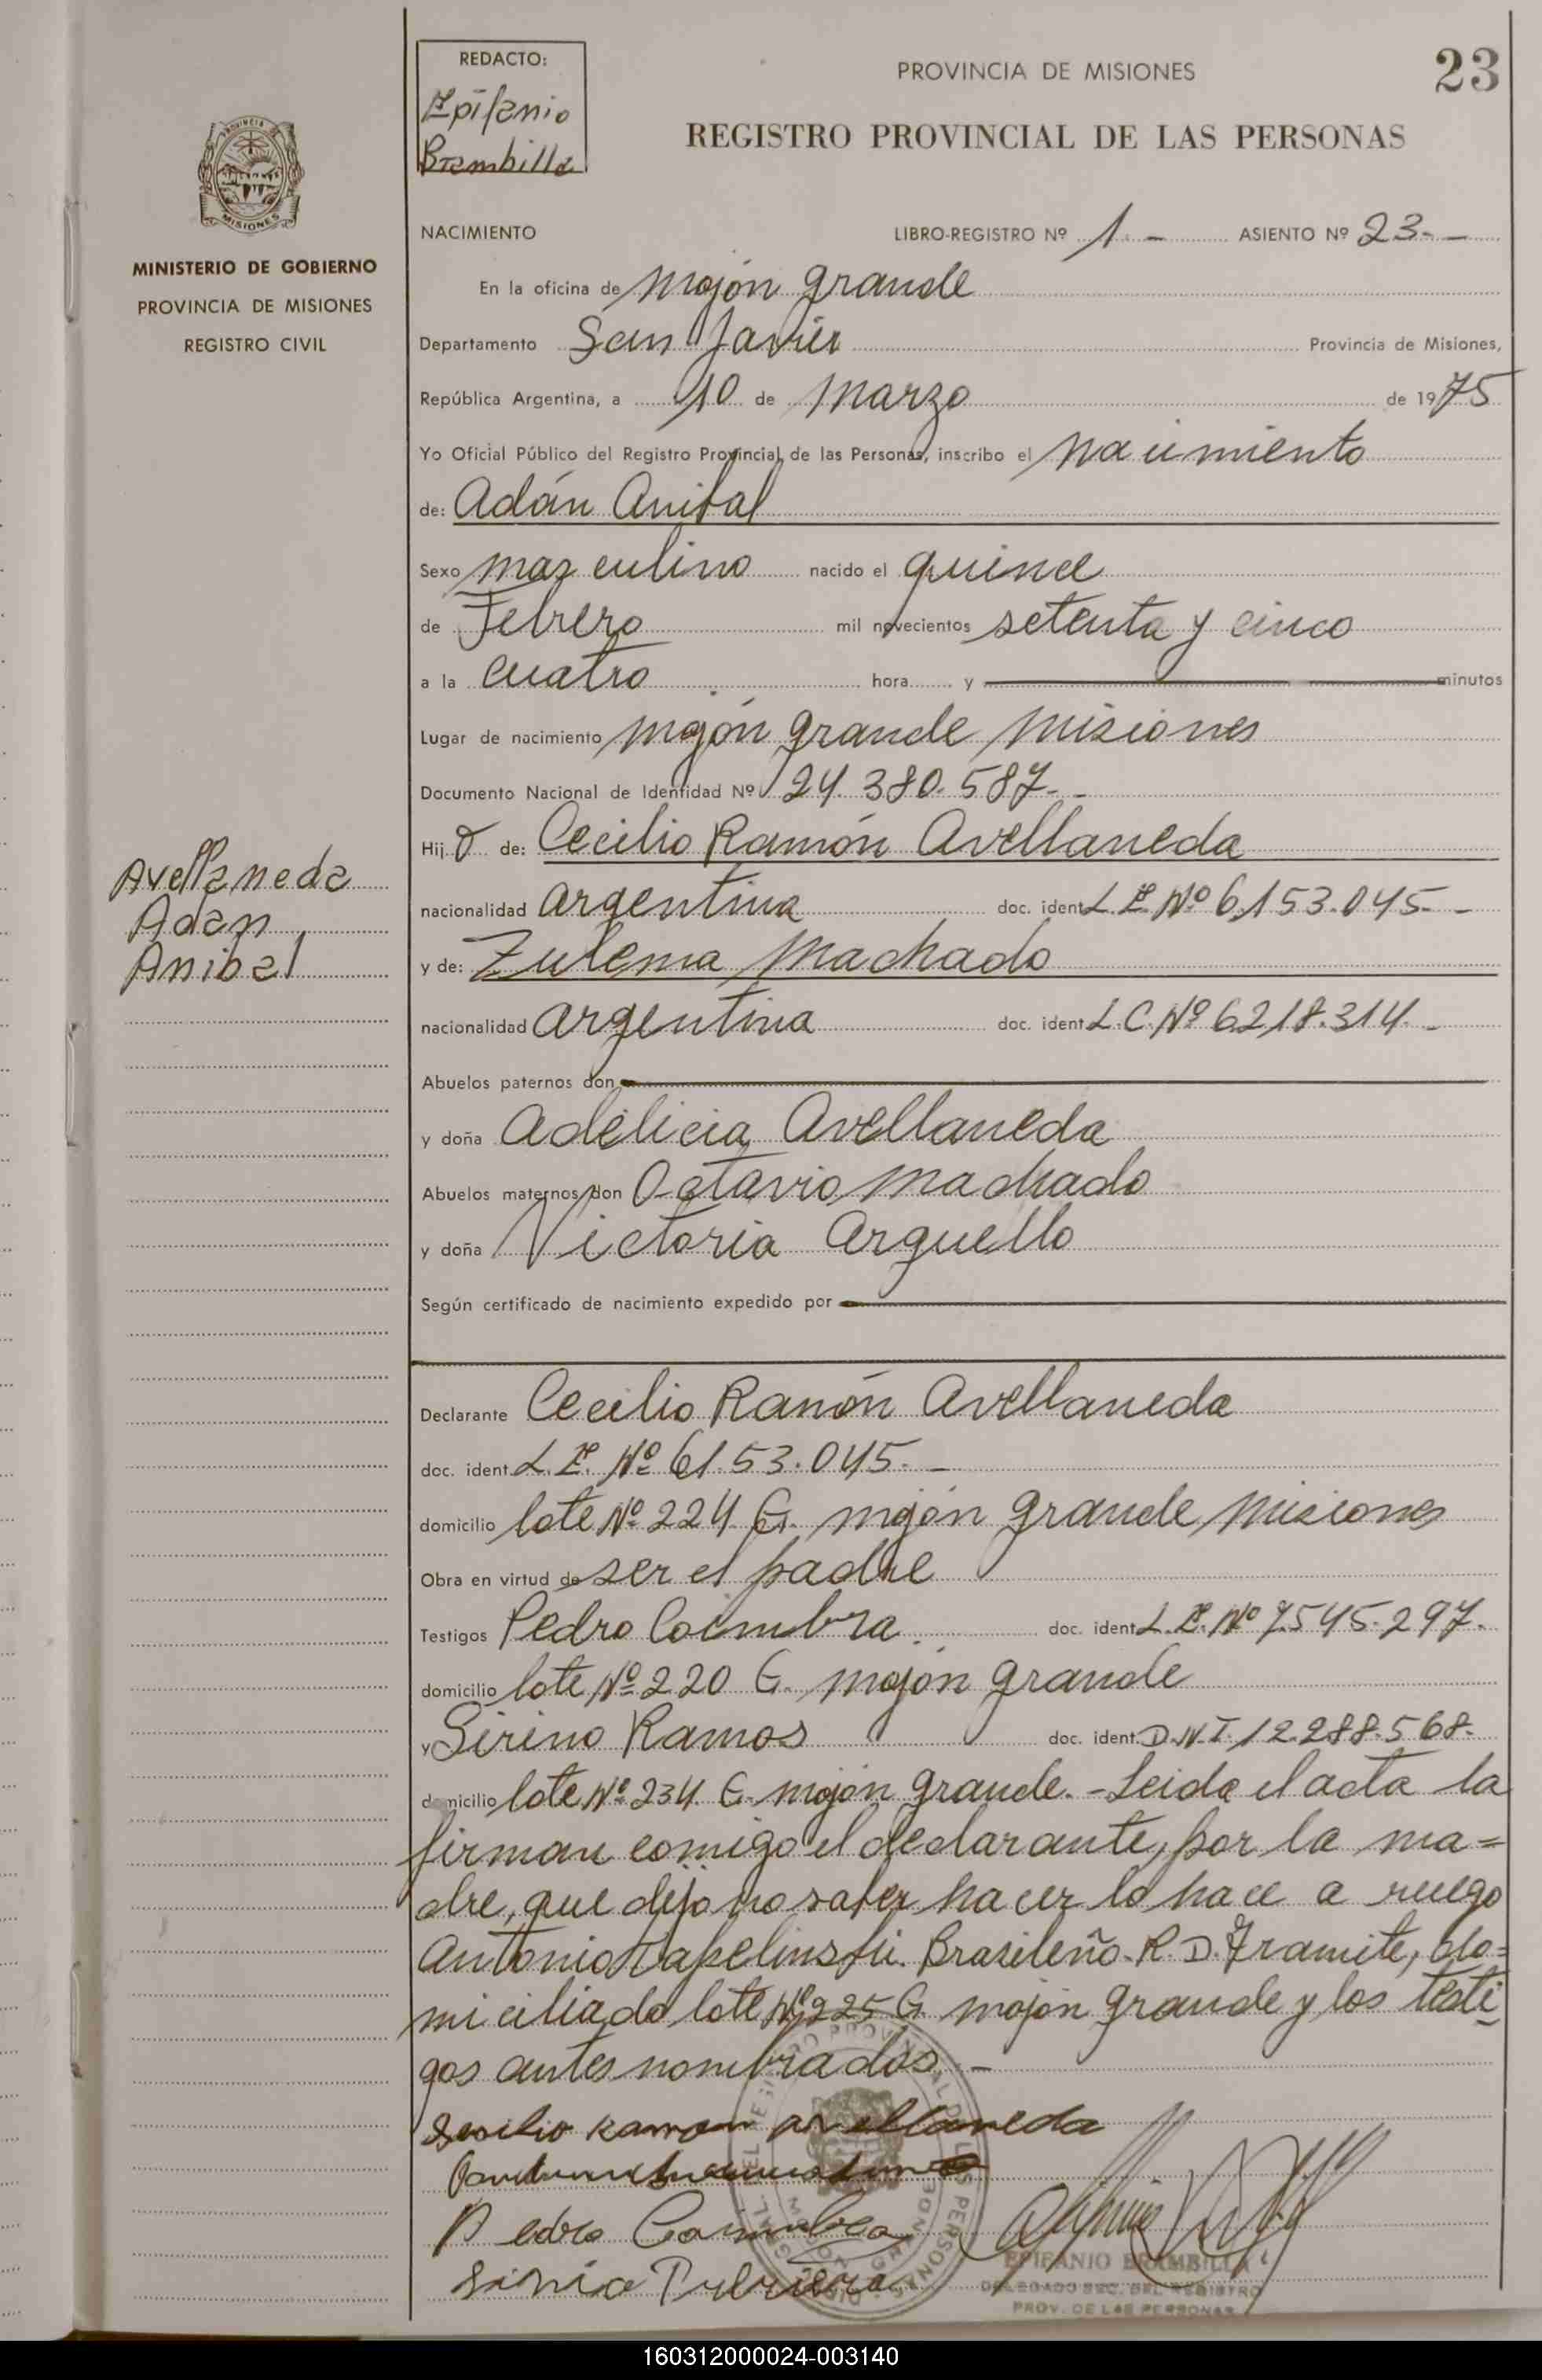 REDACTO:
Epifanio
Brambilla
PROVINCIA DE MISIONES
23
REGISTRO PROVINCIAL DE LAS PERSONAS
PROVINCIA
MISIONES
MINISTERIO DE GOBIERNO
PROVINCIA DE MISIONES
REGISTRO CIVIL
NACIMIENTO LIBRO-REGISTRO Nº 1.- ASIENTO Nº 23.-
En la oficina de Mojón grande
Departamento San Javier Provincia de Misiones,
República Argentina, a 10 de Marzo de 1975
Yo Oficial Público del Registro Provincial de las Personas, inscribo el nacimiento
de: Adán Anibal
Sexo masculino nacido el quince
de Febrero mil novecientos setenta y cinco
a la cuatro hora y minutos
Lugar de nacimiento Mojón grande Misiones
Documento Nacional de Identidad Nº 24.380.587.-
Hijo de: Cecilio Ramón Avellaneda
Avellaneda
Adan
Anibal
nacionalidad argentina doc. ident. L.E. Nº 6.153.045.-
y de: Zulema Machado
nacionalidad argentina doc. ident. L.C. Nº 6.218.314.-
Abuelos paternos don
y doña Adelicia Avellaneda
Abuelos maternos don Octavio Machado
y doña Victoria Arguello
Según certificado de nacimiento expedido por
Declarante Cecilio Ramón Avellaneda
doc. ident. L.E. Nº 6.153.045.-
domicilio lote Nº 224 G. mojón grande Misiones
Obra en virtud de ser el padre
Testigos Pedro Coimbra doc. ident. L.E. Nº 7.545.297.
domicilio lote Nº 220 G. mojón grande
y Sirino Ramos doc. ident. D.N.I. 12.288.568.
domicilio lote Nº 234 G. mojón grande.- Leida el acta la
firman comigo el declarante, por la ma=
dre, que dijo no saber hacer lo hace a ruego
Antonio Brasileño. R.D. Tramite, do=
miciliado lote Nº 225 G. mojón grande y los testi
gos antes nombrados.-
Sesilio Ramon Avellaneda
Pedro Coimbra
EPIFANIO BRAMBILLA
DELEGADO SEC. DEL REGISTRO
PROV. DE LAS PERSONAS
160312000024-003140